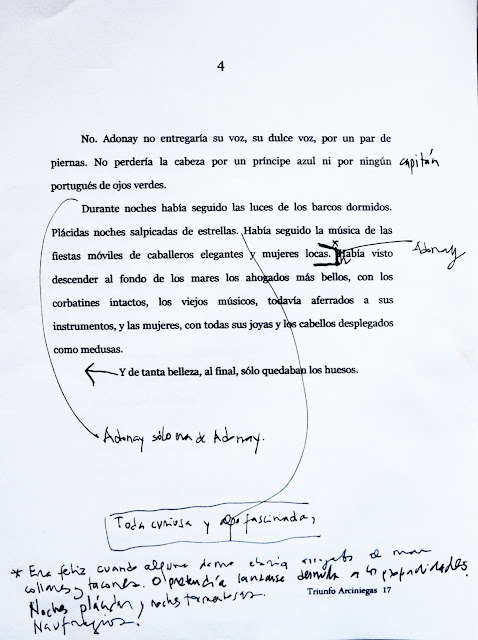 4
No. Adonay no entregaría su voz, su dulce voz, por un par de
piernas. No perdería la cabeza por un príncipe azul ni por ningún capitán
portugués de ojos verdes.
Durante noches había seguido las luces de los barcos dormidos.
Plácidas noches salpicadas de estrellas. Había seguido la música de las
fiestas móviles de caballeros elegantes y mujeres locas. Había visto
Adonay
descender al fondo de los mares los ahogados más bellos, con los
corbatines intactos, los viejos músicos, todavía aferrados a sus
instrumentos, y las mujeres, con todas sus joyas y los cabellos desplegados
como medusas.
Y de tanta belleza, al final, sólo quedaban los huesos.
Adonay sólo era de Adonay.
Toda curiosa y fascinada,
* Era feliz cuando alguna dama ebria al mar
collares y tacones. O pretendía lanzarse desnuda a las profundidades.
Noches plácidas y noches tormentosas.
Triunfo Arciniegas 17
Naufragios.